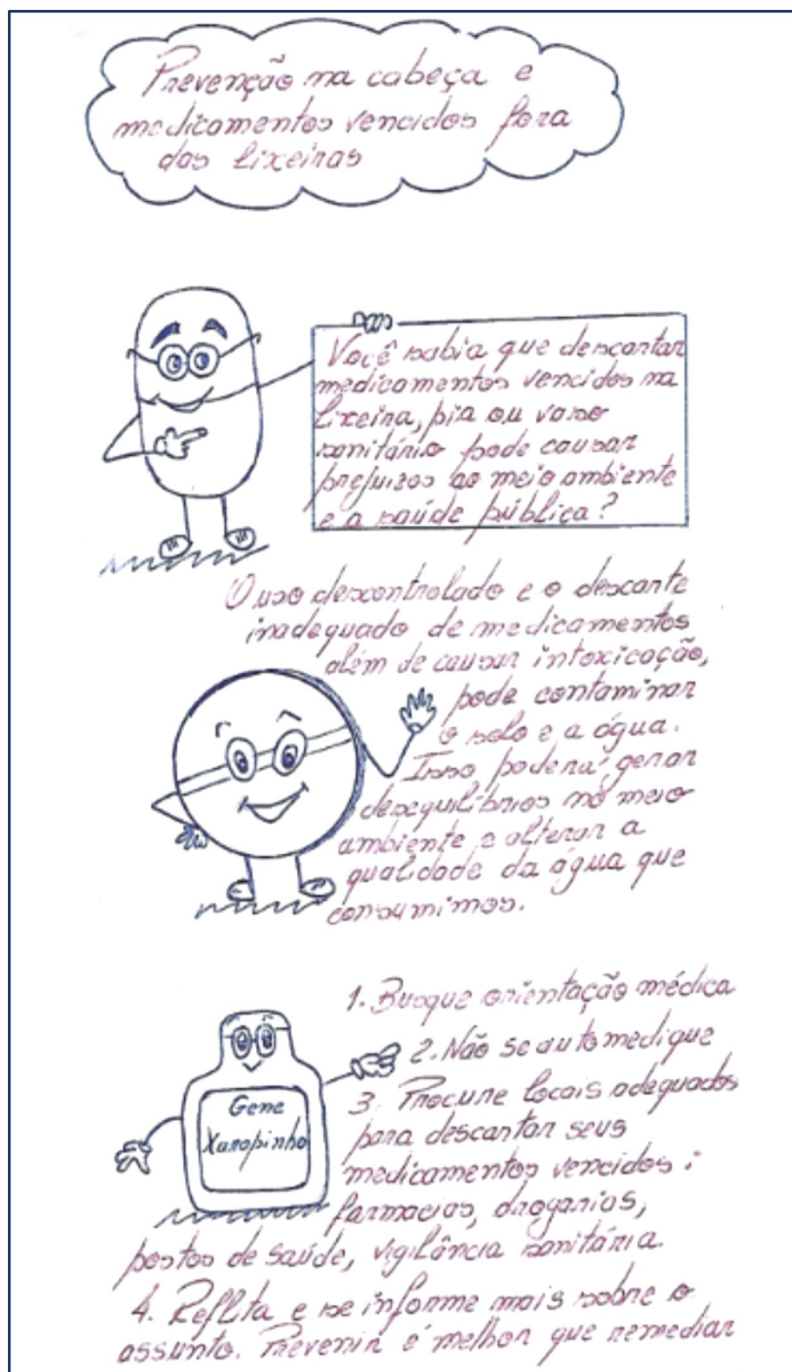 Prevenção na cabeça e
medicamentos vencidos fora
das lixeiras
Você sabia que descartar
medicamentos vencidos na
lixeira, pia ou vaso
sanitário pode causar
prejuizos ao meio ambiente
e a saúde pública?
O uso descontrolado e o descarte
inadequado de medicamentos
além de causar intoxicação,
pode contaminar
o solo e a água.
Isso poderá gerar
desequilíbrios no meio
ambiente e alterar a
qualidade da água que
consumimos.
1. Busque orientação médica
2. Não se automedique
3. Procure locais adequados
para descartar seus
medicamentos vencidos:
farmacias, drogarias,
postos de saúde, vigilância sanitária.
4. Reflita e se informe mais sobre o
assunto. Prevenir é melhor que remediar
Gene
Xaropinho